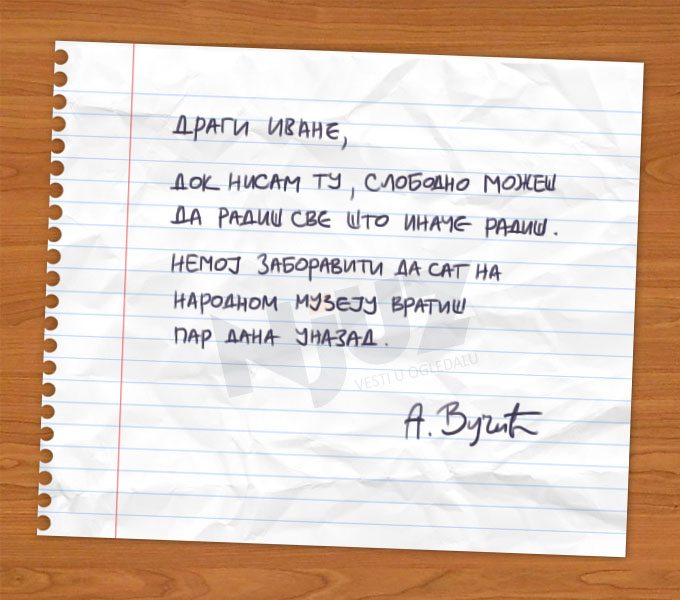 ДРАГИ ИВАНЕ,
ДОК НИСАМ ТУ, СЛОБОДНО МОЖЕШ
ДА РАДИШ СВЕ ШТО ИНАЧЕ РАДИШ.
НЕМОЈ ЗАБОРАВИТИ ДА САТ НА
НАРОДНОМ МУЗЕЈУ ВРАТИШ
ПАР ДАНА УНАЗАД.
NJUZ
VESTI U OGLEDALU
А. Вучић